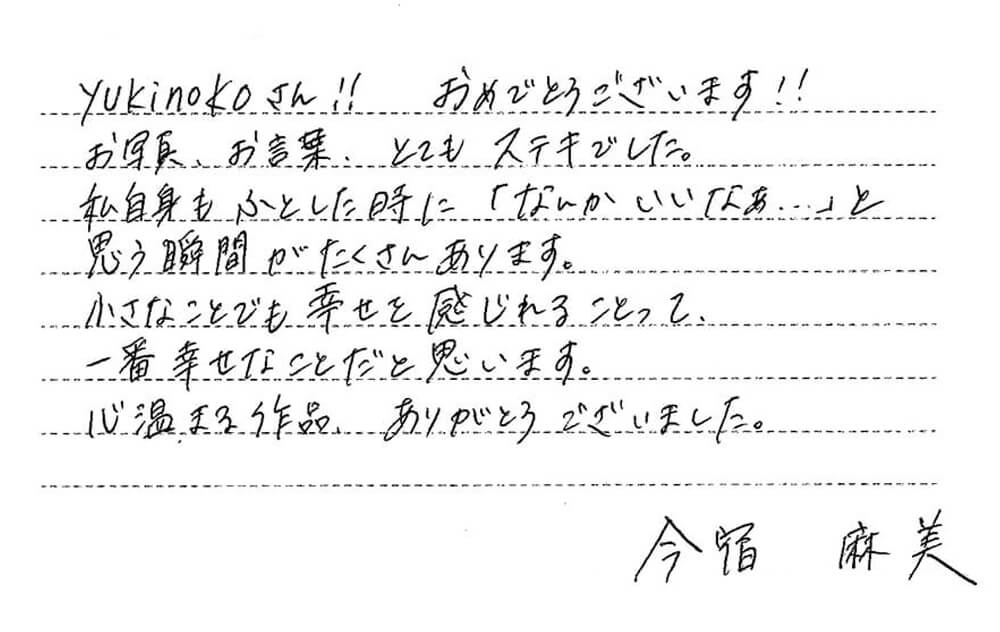 yukinokoさん!! おめでとうございます!!
お写真、お言葉、とてもステキでした。
私自身もふとした時に「なんかいいなぁ…」と
思う瞬間がたくさんあります。
小さなことでも幸せを感じれることって、
一番幸せなことだと思います。
心温まる作品、ありがとうございました。
今宿 麻美